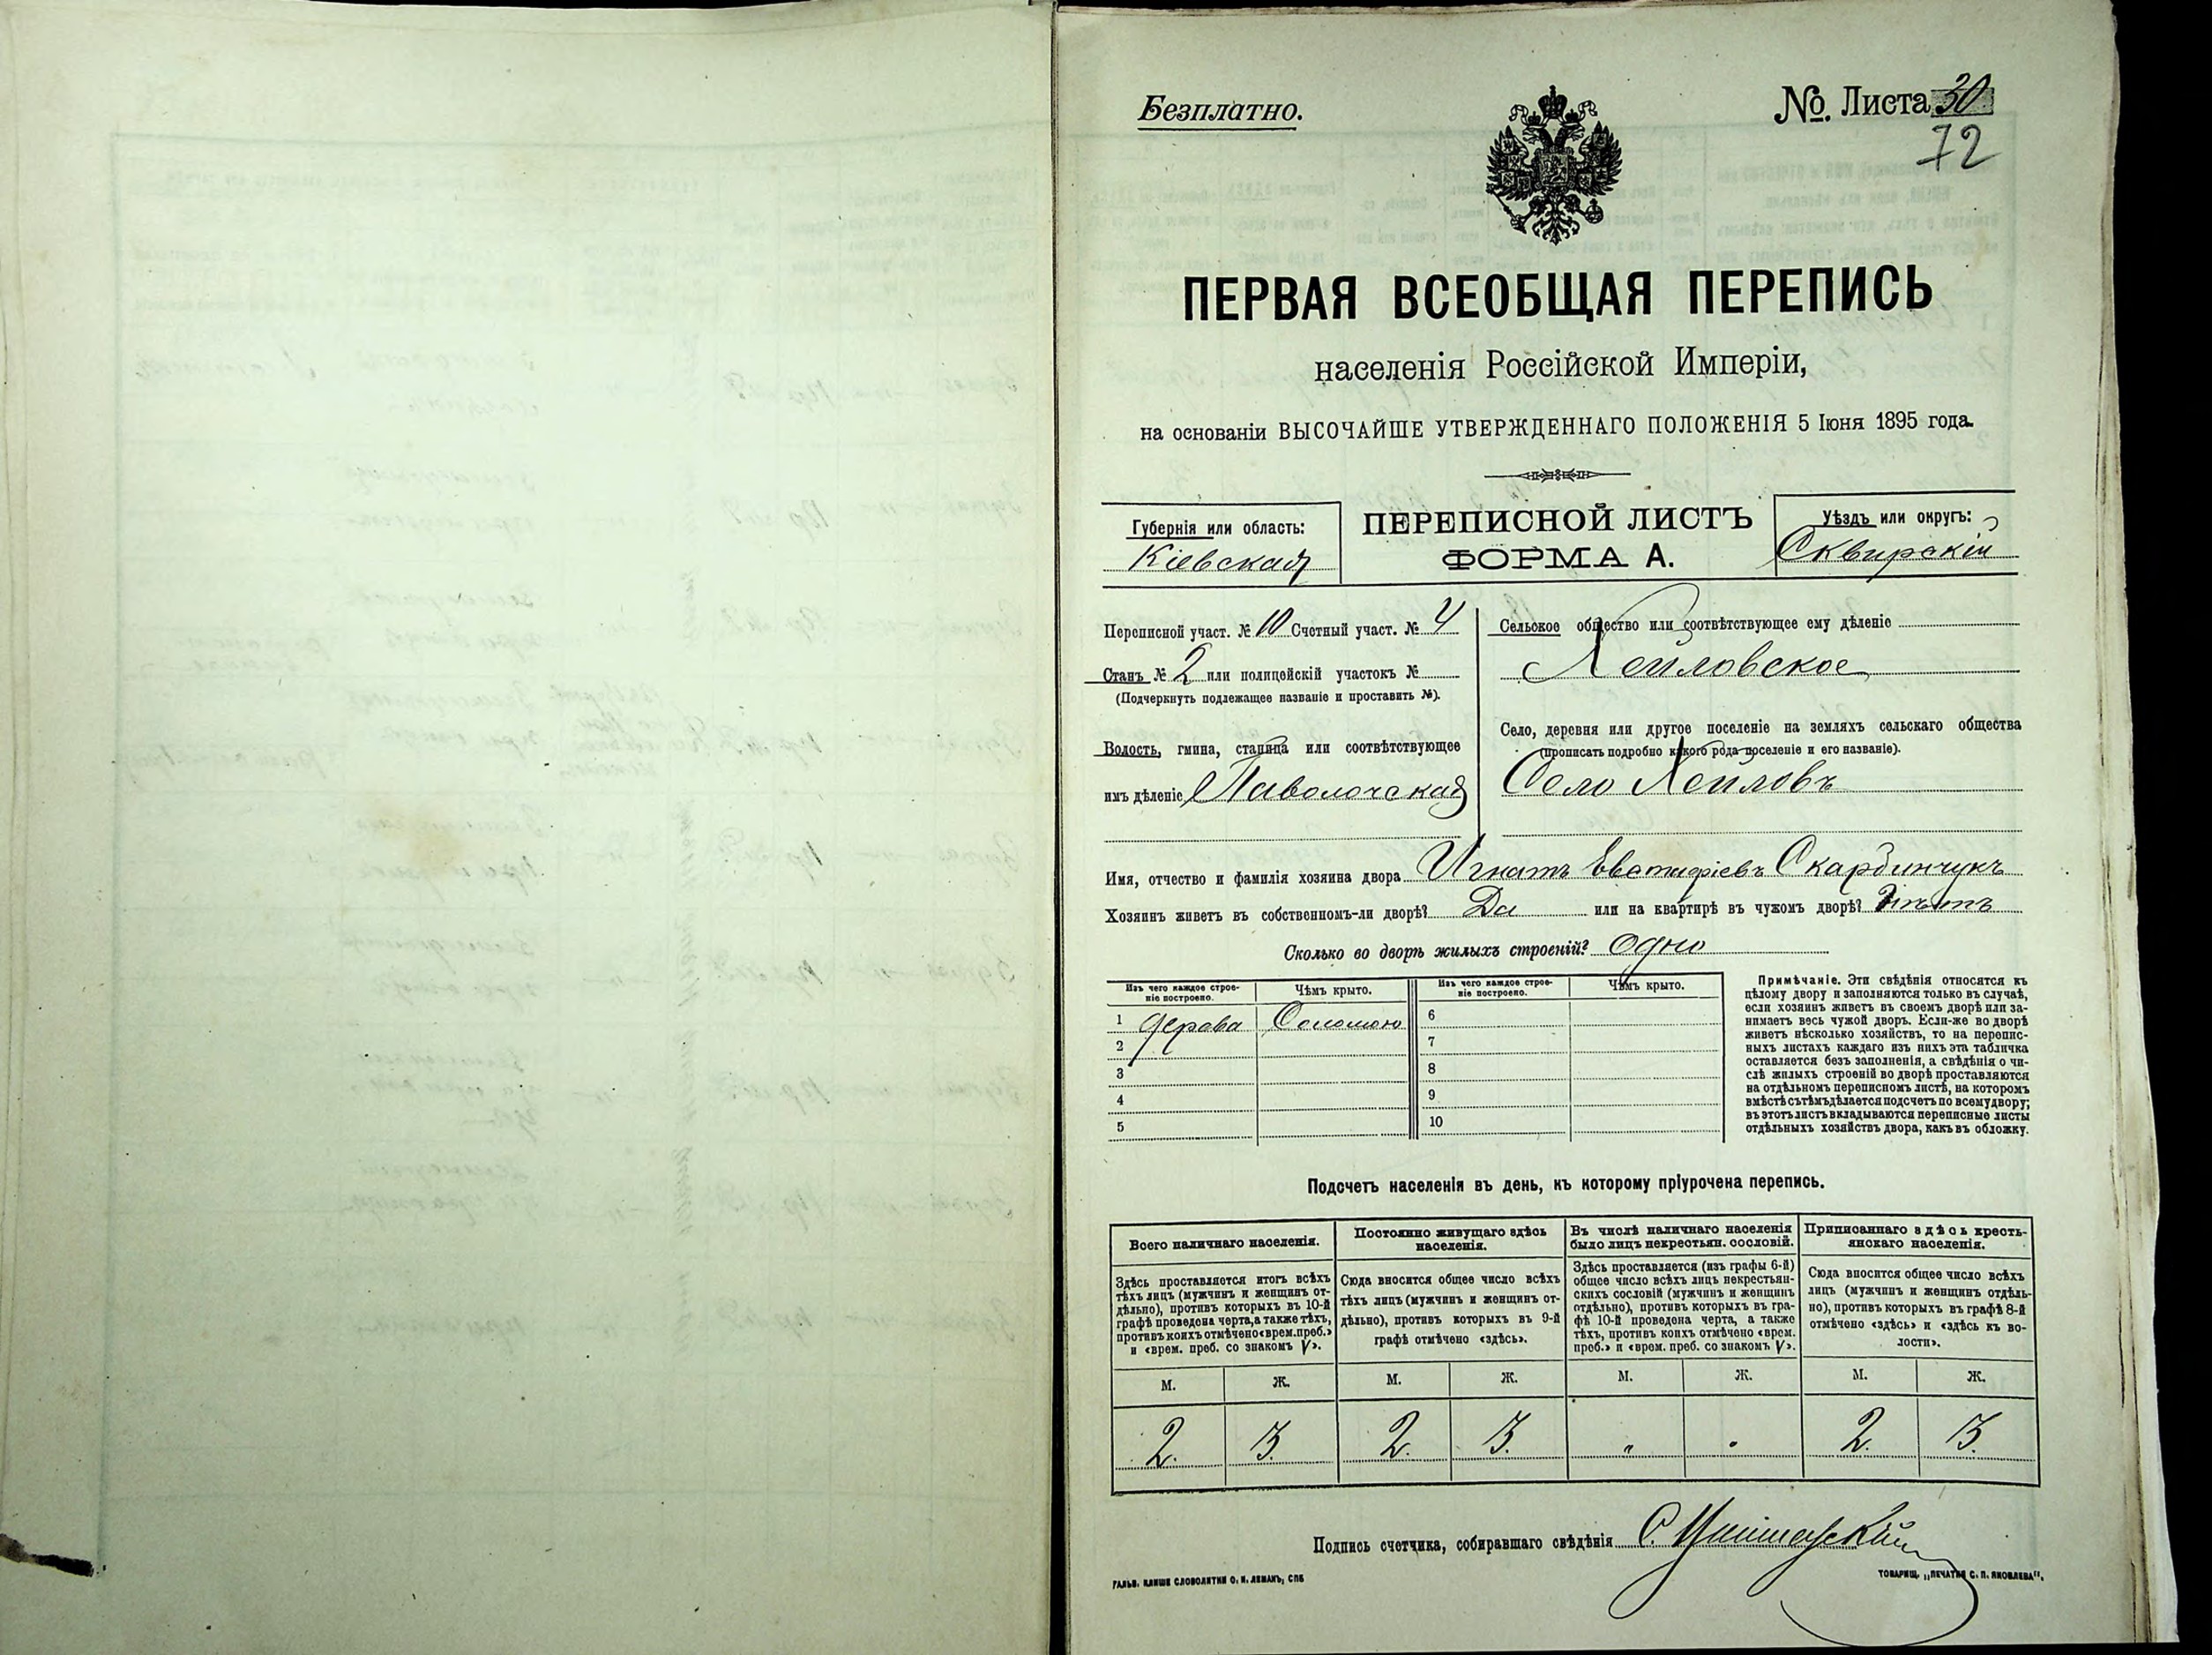 Безплатно.
№. Листа 30
72
ПЕРВАЯ ВСЕОБЩАЯ ПЕРЕПИСЬ
населенія Россійской Имперіи,
на основаніи ВЫСОЧАЙШЕ УТВЕРЖДЕННАГО ПОЛОЖЕНІЯ 5 Іюня 1895 года.
Губернія или область:
Кіевская
ПЕРЕПИСНОЙ ЛИСТЪ
ФОРМА А.
Уѣздъ или округъ:
Сквирскій
Переписной участ. № 10 Счетный участ. № 4
Станъ № 2 или полицейскій участокъ №
(Подчеркнуть подлежащее названіе и проставить №).
Волость, гмина, станица или соотвѣтствующее
имъ дѣленіе Паволочская
Сельское общество или соотвѣтствующее ему дѣленіе
Село, деревня или другое поселеніе на земляхъ сельскаго общества
(прописать подробно какого рода поселеніе и его названіе).
Село
Имя, отчество и фамилія хозяина двора Игнатъ Евстафіевъ Скардинчукъ
Хозяинъ живетъ въ собственномъ-ли дворѣ? Да или на квартирѣ въ чужомъ дворѣ? Нѣтъ
Сколько во дворѣ жилыхъ строеній? Одно
Изъ чего каждое строе-
ніе построено.
Чѣмъ крыто.
Изъ чего каждое строе-
ніе построено.
Чѣмъ крыто.
1 дерева Соломою
2
3
4
5
6
7
8
9
10
Примѣчаніе. Эти свѣдѣнія относятся къ
цѣлому двору и заполняются только въ случаѣ,
если хозяинъ живетъ въ своемъ дворѣ или за-
нимаетъ весь чужой дворъ. Если-же во дворѣ
живетъ нѣсколько хозяйствъ, то на перепис-
ныхъ листахъ каждаго изъ нихъ эта табличка
оставляется безъ заполненія, а свѣдѣнія о чи-
слѣ жилыхъ строеній во дворѣ проставляются
на отдѣльномъ переписномъ листѣ, на которомъ
вмѣстѣ съ тѣмъ дѣлается подсчетъ по всему двору;
въ этотъ листъ вкладываются переписные листы
отдѣльныхъ хозяйствъ двора, какъ въ обложку.
Подсчетъ населенія въ день, къ которому пріурочена перепись.
Всего наличнаго населенія.
Здѣсь проставляется итогъ всѣхъ
тѣхъ лицъ (мужчинъ и женщинъ от-
дѣльно), противъ которыхъ въ 10-й
графѣ проведена черта, а также тѣхъ,
противъ коихъ отмѣчено «врем. преб.»
и «врем. преб. со знакомъ V».
Постоянно живущаго здѣсь
населенія.
Сюда вносится общее число всѣхъ
тѣхъ лицъ (мужчинъ и женщинъ от-
дѣльно), противъ которыхъ въ 9-й
графѣ отмѣчено «здѣсь».
Въ числѣ наличнаго населенія
было лицъ некрестьян. сословій.
Здѣсь проставляется (изъ графы 6-й)
общее число всѣхъ лицъ некрестьян-
скихъ сословій (мужчинъ и женщинъ
отдѣльно), противъ которыхъ въ гра-
фѣ 10-й проведена черта, а также
тѣхъ, противъ коихъ отмѣчено «врем.
преб.» и «врем. преб. со знакомъ V».
Приписаннаго здѣсь кресть-
янскаго населенія.
Сюда вносится общее число всѣхъ
лицъ (мужчинъ и женщинъ отдѣль-
но), противъ которыхъ въ графѣ 8-й
отмѣчено «здѣсь» и «здѣсь къ во-
лости».
М. Ж. М. Ж. М. Ж. М. Ж.
2. 3. 2. 3. „ „ 2. 3.
Подпись счетчика, собиравшаго свѣдѣнія
ГАЛЬВ. КЛИШЕ СЛОВОЛИТНИ О. И. ЛЕМАНЪ, СПБ
ТОВАРИЩ. „ПЕЧАТНЯ С. П. ЯКОВЛЕВА".